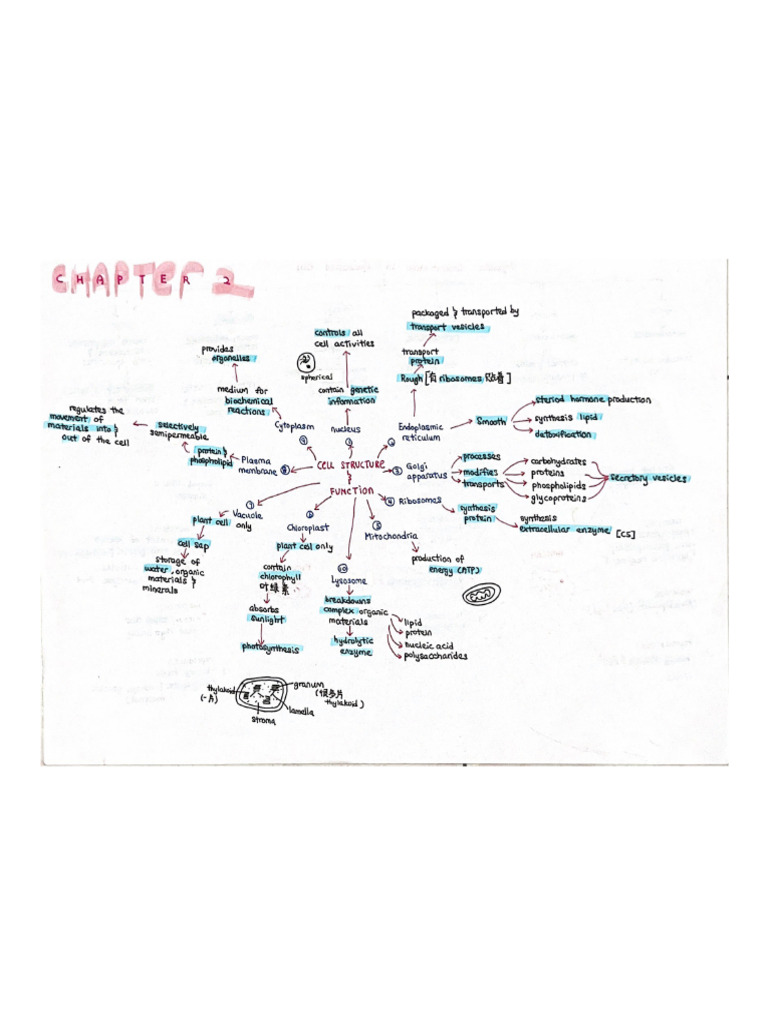 CHAPTER 2
CELL STRUCTURE
&
FUNCTION
① nucleus
contain genetic
information
controls all
cell activities
spherical
② Endoplasmic
reticulum
Rough [有 ribosomes
]
transport
protein
packaged & transported by
transport vesicles
Smooth
steriod hormone production
synthesis lipid
detoxification
③ Golgi
apparatus
processes
modifies
transports
carbohydrates
proteins
phospholipids
glycoproteins
secretory vesicles
④ Ribosomes
synthesis
protein
synthesis
extracellular enzyme [C5]
⑤
Mitochondria
production of
energy (ATP)
⑩
Lysosome
breakdowns
complex organic
materials
hydrolytic
enzyme
lipid
protein
nucleic acid
polysaccharides
⑥
Chloroplast
plant cell only
contain
chlorophyll
叶绿素
absorbs
sunlight
photosynthesis
thylakoid
(一片)
granum
(很多片
thylakoid)
lamella
stroma
⑦
Vacuole
plant cell only
cell sap
storage of
water, organic
materials &
minerals
⑧ Plasma
membrane
protein &
phospholipid
selectively
semipermeable
regulates the
movement of
materials into &
out of the cell
⑨ Cytoplasm
medium for
biochemical
reactions
provides
organelles